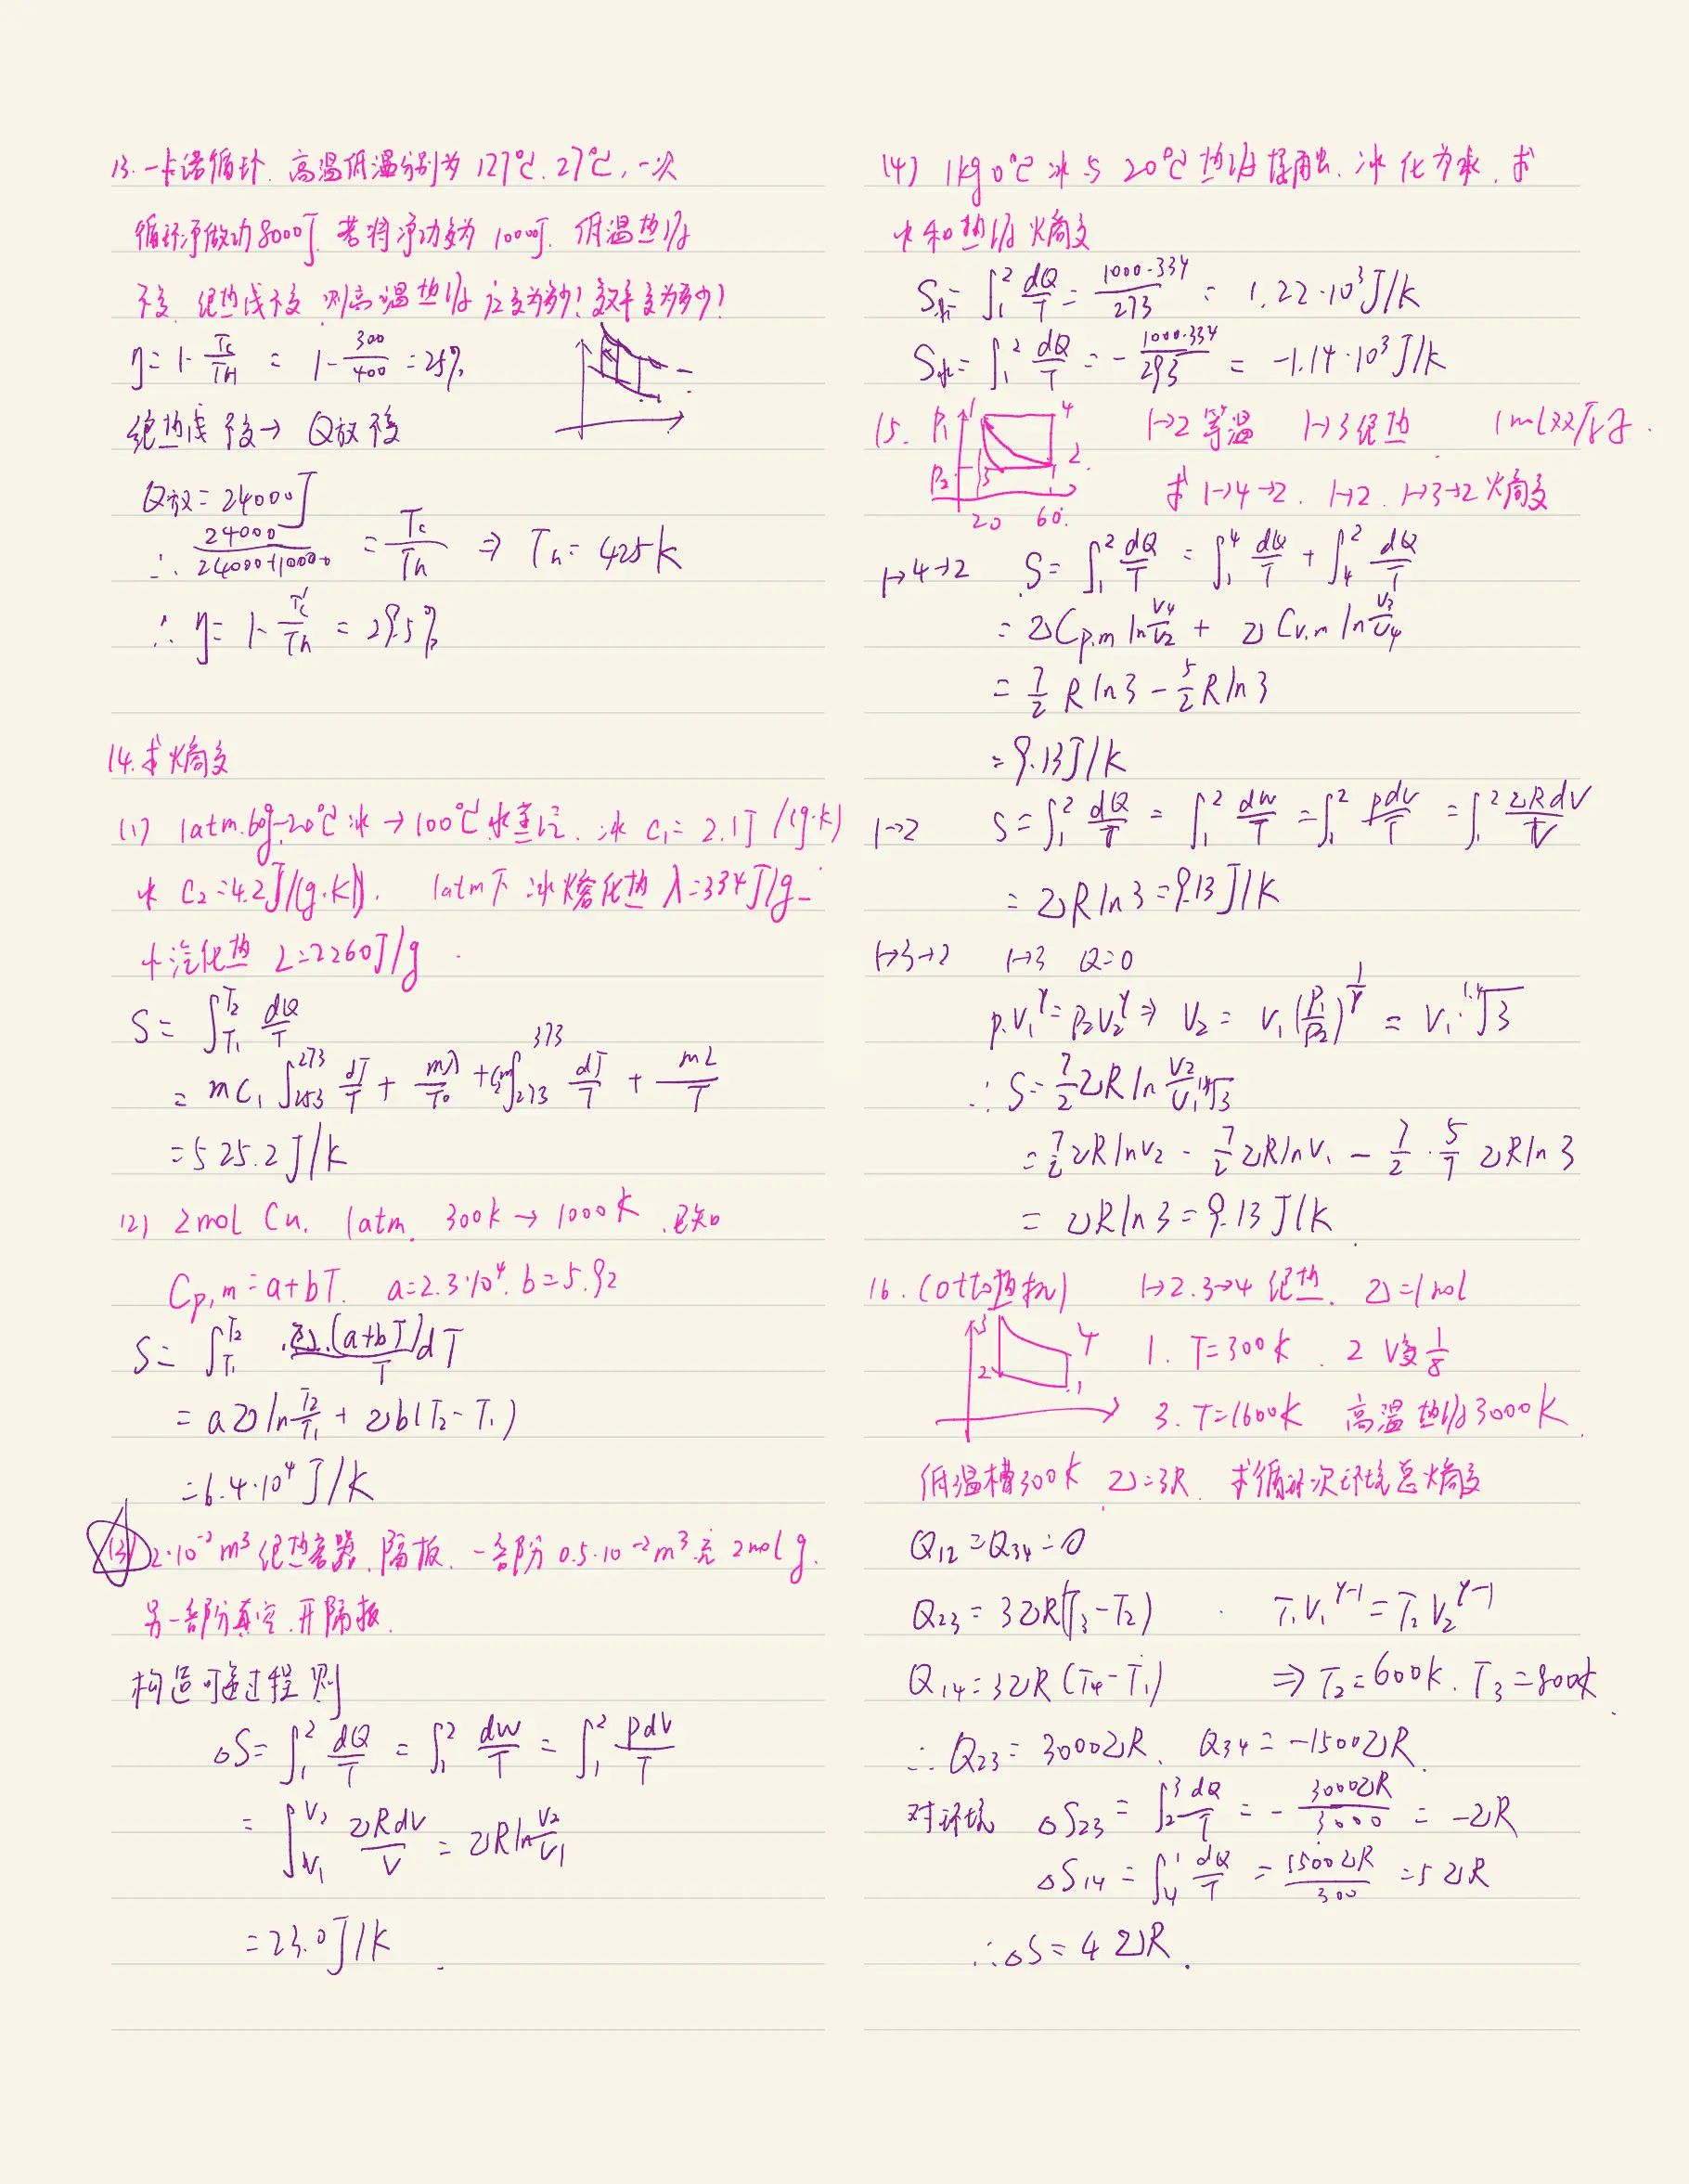 13. 一卡诺循环. 高温低温分别为 127℃、27℃, 一次
循环净做功8000J. 若将净功变为 10000J. 低温热源
不变. 绝热线不变 则高温热源应变为多少? 效率变为多少?
η = 1 - Tc/TH = 1 - 300/400 = 25%
绝热线不变 → Q放不变
Q放 = 24000J
∴ 24000/(24000+10000) = Tc/Th ⇒ Th = 425K
∴ η = 1 - Tc/Th = 29.5%
14. 求熵变
(1) 1atm. 60g -20℃冰 → 100℃水蒸汽. 冰 C₁ = 2.1J/(g·k)
水 C₂ = 4.2J/(g·k). 1atm下 冰熔化热 λ = 334J/g
水汽化热 L = 2260J/g.
S = ∫_{T₁}^{T₂} dQ/T
= mC₁ ∫_{253}^{273} dT/T + mλ/T₀ + C₂m ∫_{273}^{373} dT/T + mL/T
= 525.2J/k
(2) 2mol Cu. 1atm. 300k → 1000k. 已知
Cp,m = a+bT. a = 2.3·10⁴. b = 5.92
S = ∫_{T₁}^{T₂} ν(a+bT)/T dT
= aν ln T₂/T₁ + νb(T₂-T₁)
= 6.4·10⁴ J/k
(3) 2·10⁻² m³ 绝热容器. 隔板. 一部分 0.5·10⁻² m³ 充 2mol g.
另一部分真空. 开隔板.
构造可逆过程 则
△S = ∫₁² dQ/T = ∫₁² dW/T = ∫₁² pdV/T
= ∫_{V₁}^{V₂} νRdV/V = νR ln V₂/V₁
= 23.0J/k.
(4) 1kg 0℃冰与 20℃热源接触. 冰化为水. 求
水和热源熵变
S水 = ∫₁² dQ/T = 1000·334/273 = 1.22·10³J/k
S源 = ∫₁² dQ/T = -1000·334/293 = -1.14·10³J/k
15. P₁ 1 4 1→2等温 1→3绝热 1mol双原子g.
P₂ 3 2 求 1→4→2. 1→2. 1→3→2熵变
20 60.
1→4→2 S = ∫₁² dQ/T = ∫₁⁴ dQ/T + ∫₄² dQ/T
= νCp.m ln V₄/V₂ + νCv.m ln V₃/V₄
= 7/2 R ln3 - 5/2 R ln3
= 9.13J/k
1→2 S = ∫₁² dQ/T = ∫₁² dW/T = ∫₁² pdV/T = ∫₁² νRdV/V
= νR ln3 = 9.13J/k
1→3→2 1→3 Q=0
p₁V₁^γ = p₂V₂^γ ⇒ V₂ = V₁(P₁/P₂)^{1/γ} = V₁ ^{1.4}√3
∴ S = 7/2 νR ln V₂/(V₁ ^{1.4}√3)
= 7/2 νR lnV₂ - 7/2 νR lnV₁ - 7/2 · 5/7 νR ln3
= νR ln3 = 9.13J/k.
16. (otto热机) 1→2. 3→4绝热. ν = 1mol
3 4 1. T=300k. 2 V变1/8
2 1 3. T=1600k 高温热源3000k.
低温槽300k. ν=3R. 求循环次环境总熵变
Q₁₂ = Q₃₄ = 0
Q₂₃ = 3νR(T₃-T₂) . T₁V₁^{γ-1} = T₂V₂^{γ-1}
Q₁₄ = 3νR(T₄-T₁) ⇒ T₂ = 600k. T₃ = 800k.
∴ Q₂₃ = 3000νR. Q₃₄ = -1500νR.
对环境 △S₂₃ = ∫₂³ dQ/T = -3000νR/3000 = -νR
△S₁₄ = ∫₄¹ dQ/T = 1500νR/300 = 5νR
∴ △S = 4νR.